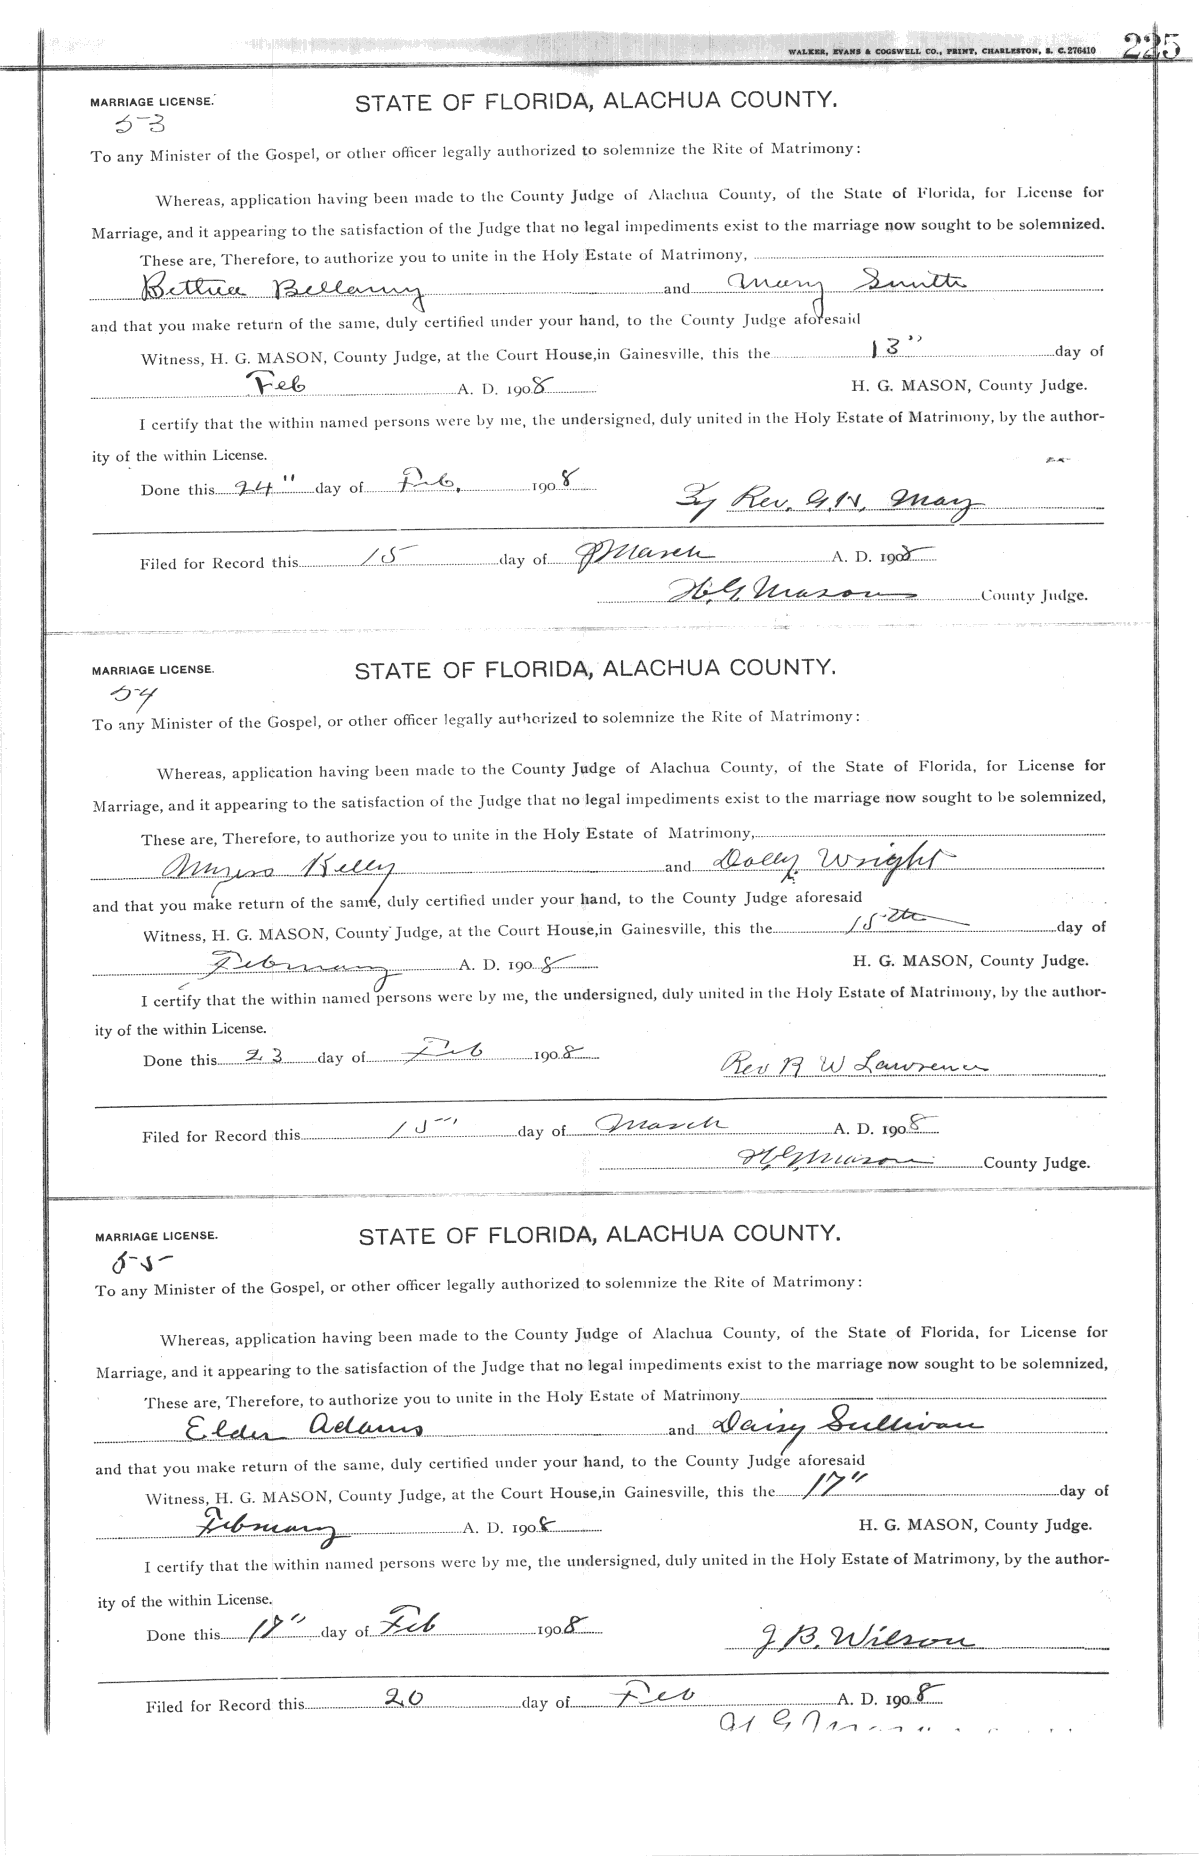 WALKER, EVANS & COGSWELL CO., PRINT, CHARLESTON, S. C. 276410 225
MARRIAGE LICENSE. STATE OF FLORIDA, ALACHUA COUNTY.
53
To any Minister of the Gospel, or other officer legally authorized to solemnize the Rite of Matrimony:
Whereas, application having been made to the County Judge of Alachua County, of the State of Florida, for License for
Marriage, and it appearing to the satisfaction of the Judge that no legal impediments exist to the marriage now sought to be solemnized.
These are, Therefore, to authorize you to unite in the Holy Estate of Matrimony,
Bethea Bellamy and Mary Smith
and that you make return of the same, duly certified under your hand, to the County Judge aforesaid
Witness, H. G. MASON, County Judge, at the Court House, in Gainesville, this the 13" day of
Feb A. D. 1908 H. G. MASON, County Judge.
I certify that the within named persons were by me, the undersigned, duly united in the Holy Estate of Matrimony, by the author-
ity of the within License.
Done this 24" day of Feb. 1908
By Rev. G. H. May
Filed for Record this 15 day of March A. D. 1908
H. G. Mason County Judge.
MARRIAGE LICENSE. STATE OF FLORIDA, ALACHUA COUNTY.
54
To any Minister of the Gospel, or other officer legally authorized to solemnize the Rite of Matrimony:
Whereas, application having been made to the County Judge of Alachua County, of the State of Florida, for License for
Marriage, and it appearing to the satisfaction of the Judge that no legal impediments exist to the marriage now sought to be solemnized,
These are, Therefore, to authorize you to unite in the Holy Estate of Matrimony,
Kelly and Dolly Wright
and that you make return of the same, duly certified under your hand, to the County Judge aforesaid
Witness, H. G. MASON, County Judge, at the Court House, in Gainesville, this the 15th day of
February A. D. 1908 H. G. MASON, County Judge.
I certify that the within named persons were by me, the undersigned, duly united in the Holy Estate of Matrimony, by the author-
ity of the within License.
Done this 23 day of Feb 1908
Rev R W Lawrence
Filed for Record this 15" day of March A. D. 1908
H. G. Mason County Judge.
MARRIAGE LICENSE. STATE OF FLORIDA, ALACHUA COUNTY.
55
To any Minister of the Gospel, or other officer legally authorized to solemnize the Rite of Matrimony:
Whereas, application having been made to the County Judge of Alachua County, of the State of Florida, for License for
Marriage, and it appearing to the satisfaction of the Judge that no legal impediments exist to the marriage now sought to be solemnized,
These are, Therefore, to authorize you to unite in the Holy Estate of Matrimony
Elder Adams and Daisy Sullivan
and that you make return of the same, duly certified under your hand, to the County Judge aforesaid
Witness, H. G. MASON, County Judge, at the Court House, in Gainesville, this the 17" day of
February A. D. 1908 H. G. MASON, County Judge.
I certify that the within named persons were by me, the undersigned, duly united in the Holy Estate of Matrimony, by the author-
ity of the within License.
Done this 17" day of Feb 1908
J B. Wilson
Filed for Record this 20 day of Feb A. D. 1908